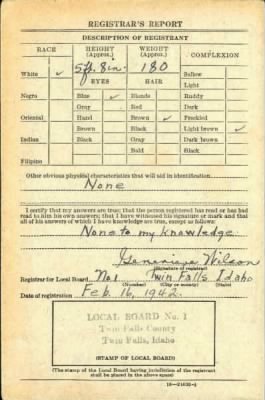 REGISTRAR'S REPORT
DESCRIPTION OF REGISTRANT
RACE HEIGHT (Approx.) WEIGHT (Approx.) COMPLEXION
White ✓ 5 ft. 8 in. 180 Sallow
EYES HAIR Light
Negro Blue ✓ Blonde Ruddy
Gray Red Dark
Oriental Hazel Brown ✓ Freckled
Brown Black Light brown ✓
Indian Black Gray Dark brown
Bald Black
Filipino
Other obvious physical characteristics that will aid in identification
None
I certify that my answers are true; that the person registered has read or has had
read to him his own answers; that I have witnessed his signature or mark and that
all of his answers of which I have knowledge are true, except as follows:
None to my knowledge
Wilson
(Signature of registrar)
Registrar for Local Board No 1 Twin Falls Idaho
(Number) (City or county) (State)
Date of registration Feb. 16, 1942.
LOCAL BOARD No. 1
Twin Falls County
Twin Falls, Idaho
(STAMP OF LOCAL BOARD)
(The stamp of the Local Board having jurisdiction of the registrant
shall be placed in the above space)